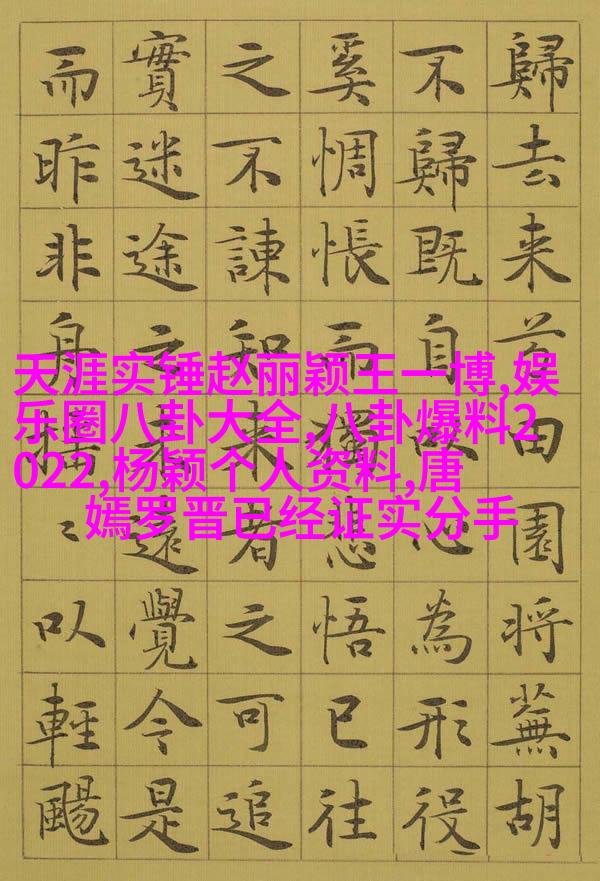 歸去来田園将蕪胡
不歸既自心為形役
奚惆悵而獨悲悟已往
之不諫知来者之可追
實迷途未遠覺今是
而昨非舟搖〻以輕颺
天涯实锤赵丽颖王一博,娱
乐圈八卦大全,八卦爆料2
022,杨颖个人资料,唐
嫣罗晋已经证实分手